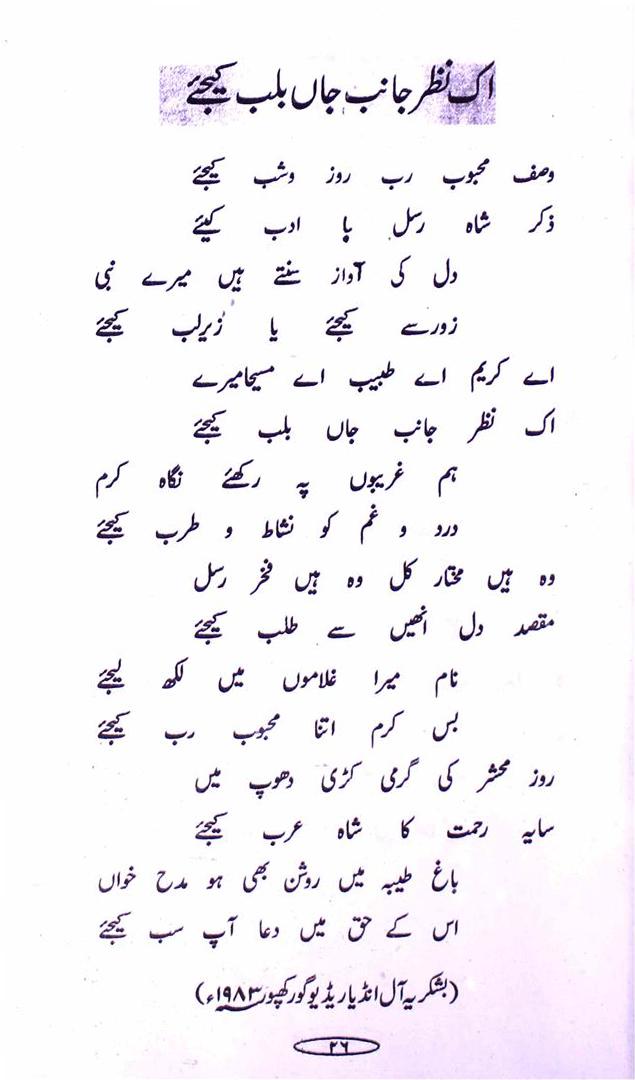 اک نظر جانب جاں بلب کیجئے
وصف محبوب رب روز وشب کیجئے
ذکر شاہ رسل با ادب کیئے
دل کی آواز سنتے ہیں میرے نبی
زورسے کیجئے یا زیرلب کیجئے
اے کریم اے طبیب اے مسیحامیرے
اک نظر جانب جاں بلب کیجئے
ہم غریبوں پہ رکھئے نگاہ کرم
درد و غم کو نشاط و طرب کیجئے
وہ ہیں مختار کل وہ ہیں فخر رسل
مقصد دل انھیں سے طلب کیجئے
نام میرا غلاموں میں لکھ لیجئے
بس کرم اتنا محبوب رب کیجئے
روز محشر کی گرمی کڑی دھوپ میں
سایہ رحمت کا شاہ عرب کیجئے
باغ طیبہ میں روشن بھی ہو مدح خواں
اس کے حق میں دعا آپ سب کیجئے
(بشکریہ آل انڈیا ریڈیو گورکھپور ۱۹۸۳ء)
۲۶